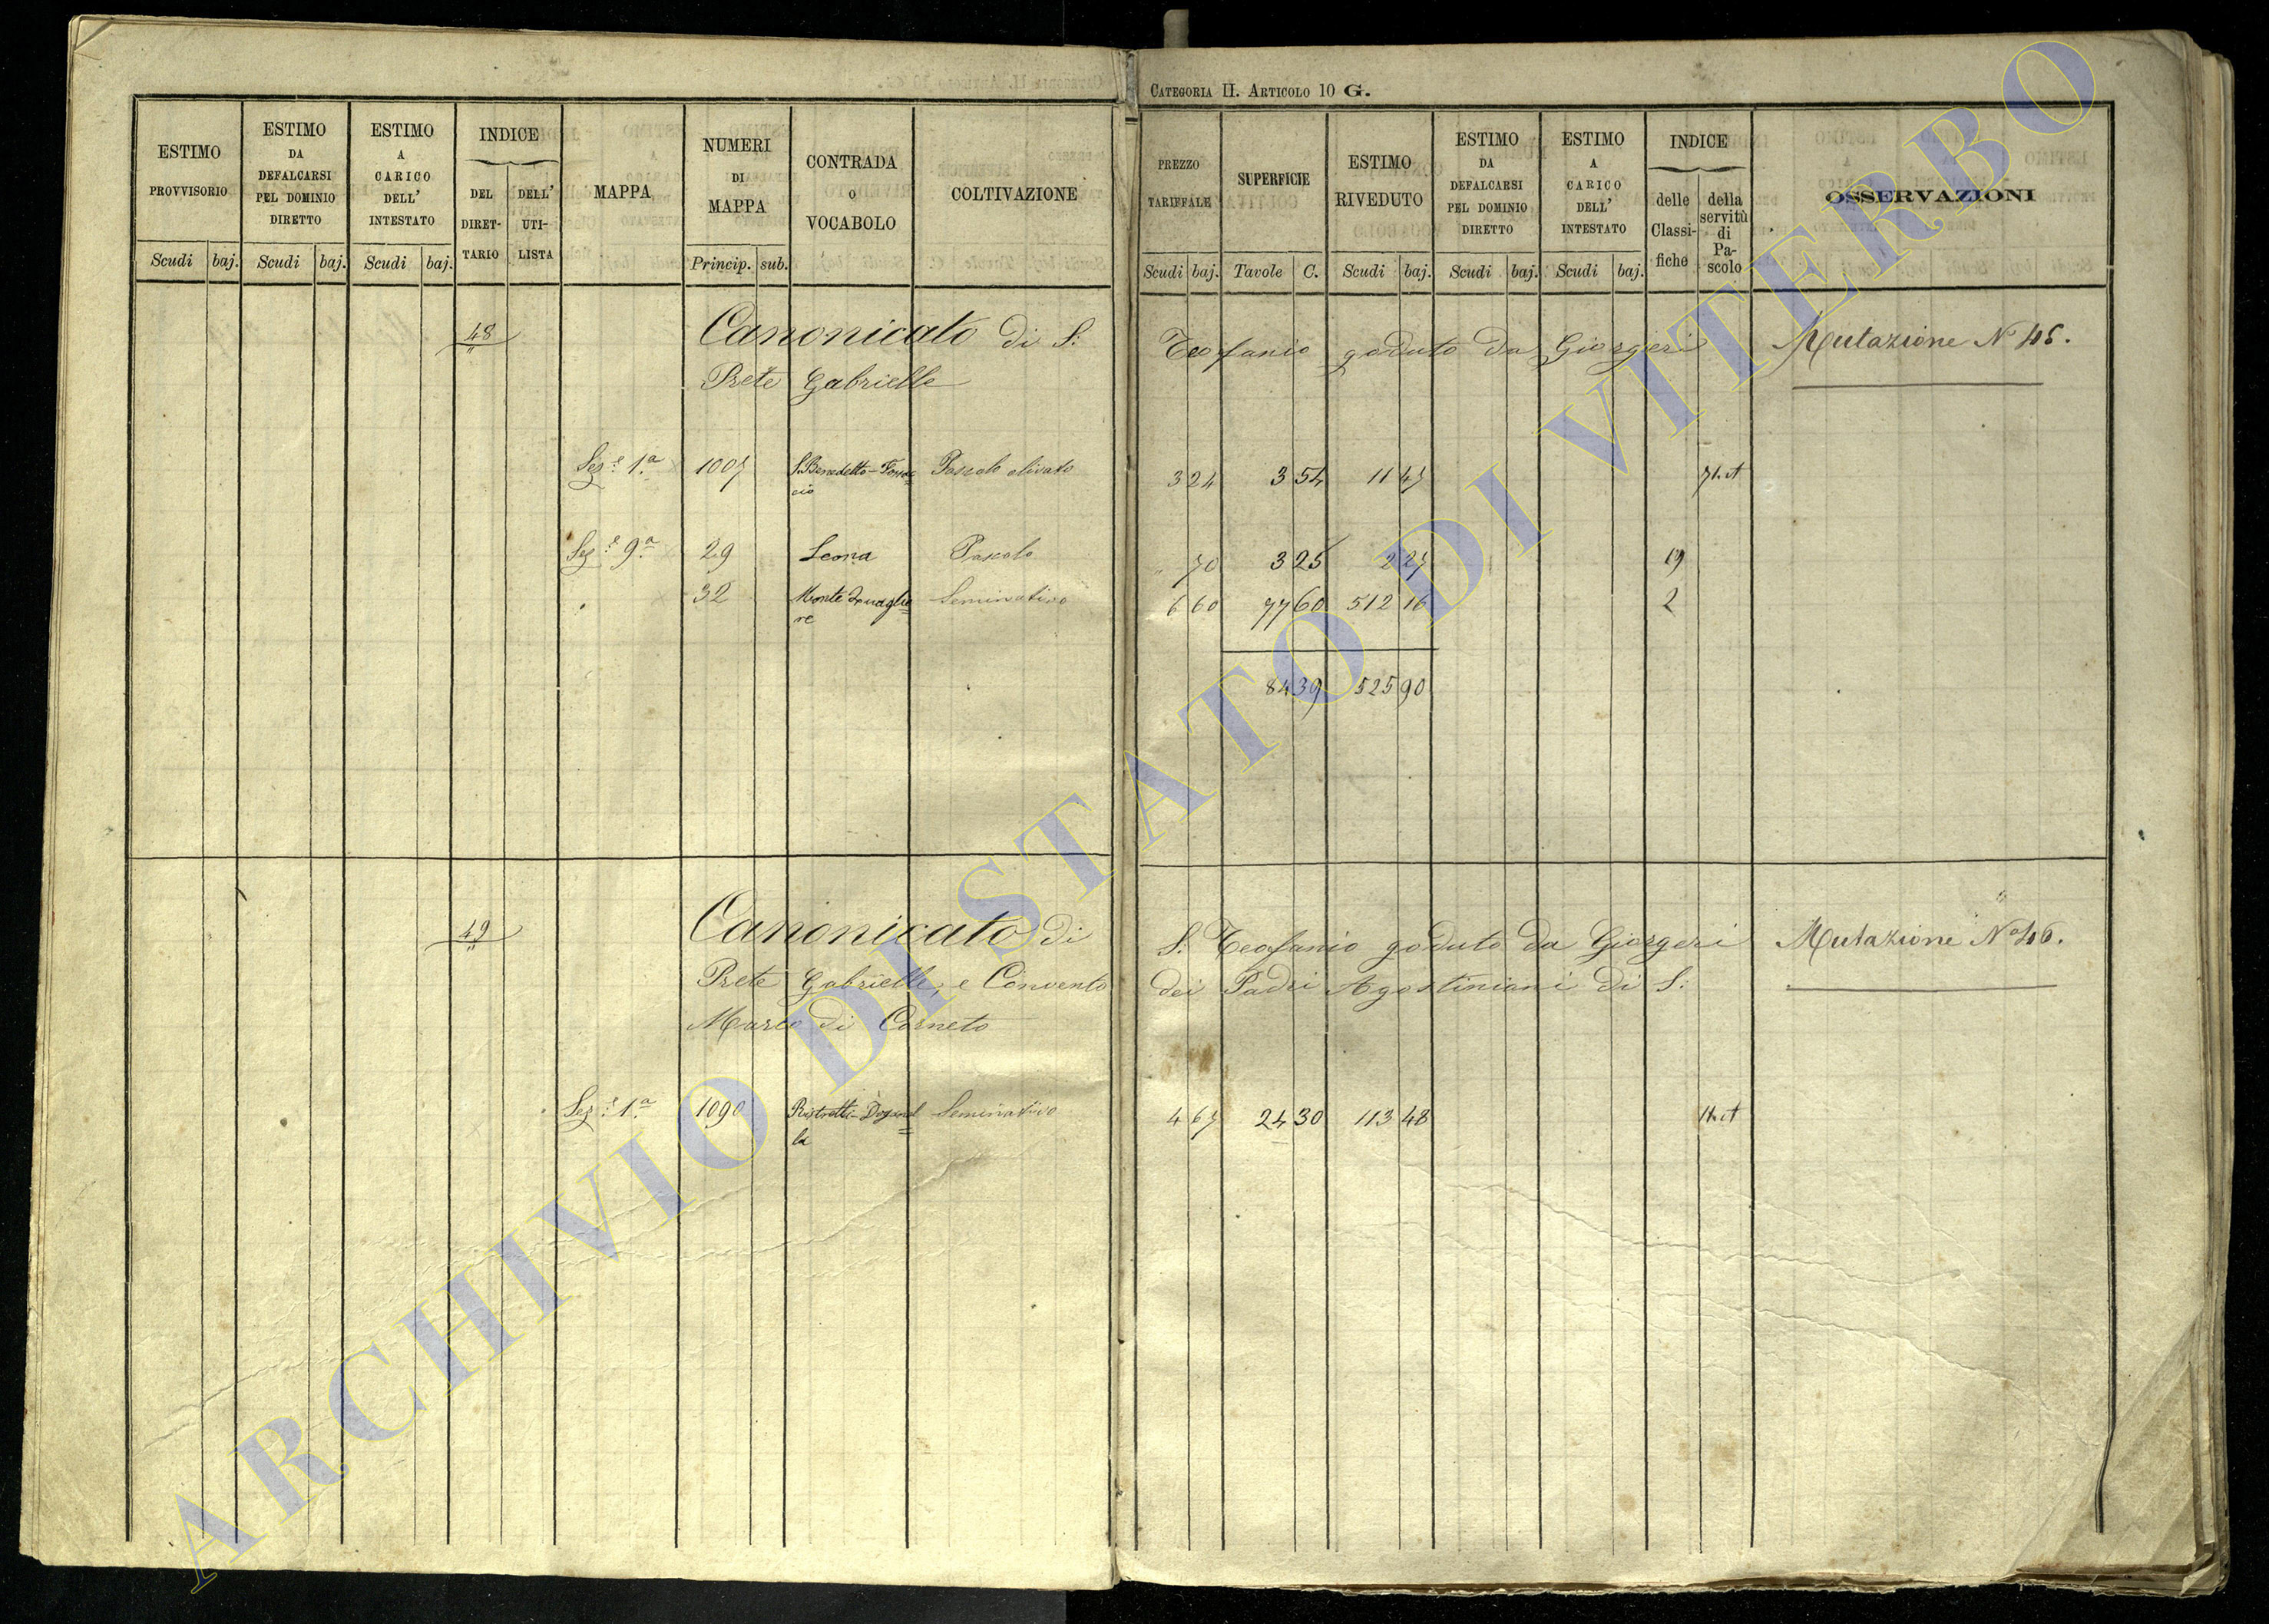 CATEGORIA II. ARTICOLO 10 G.
ESTIMO PROVVISORIO Scudi baj.
ESTIMO DA DEFALCARSI PEL DOMINIO DIRETTO Scudi baj.
ESTIMO A CARICO DELL' INTESTATO Scudi baj.
INDICE DEL DIRET-TARIO DELL' UTI-LISTA
MAPPA
NUMERI DI MAPPA Princip. sub.
CONTRADA O VOCABOLO
COLTIVAZIONE
PREZZO TARIFFALE Scudi baj.
SUPERFICIE Tavole C.
ESTIMO RIVEDUTO Scudi baj.
ESTIMO DA DEFALCARSI PEL DOMINIO DIRETTO Scudi baj.
ESTIMO A CARICO DELL' INTESTATO Scudi baj.
INDICE delle Classi-fiche della servitù di Pa-scolo
OSSERVAZIONI
48 Canonicato di S: Teofanio goduto da Giorgeri Mutazione N° 45.
Prete Gabrielle
Sez:e 1.a 1007 S. Benedetto- Pascolo olivato 3 24 3 54 11 47
Sez:e 9.a 29 Leona Pascolo " 70 3 25 2 27 19
32 Monte Seminativo 6 60 77 60 512 16 2
84 39 525 90
49 Canonicato di S. Teofanio goduto da Giorgeri Mutazione N° 46.
Prete Gabrielle, e Convento dei Padri Agostiniani di S:
Marco di Corneto
Sez:e 1.a 1090 Ristretti- Seminativo 4 67 24 30 113 48
ARCHIVIO DI STATO DI VITERBO